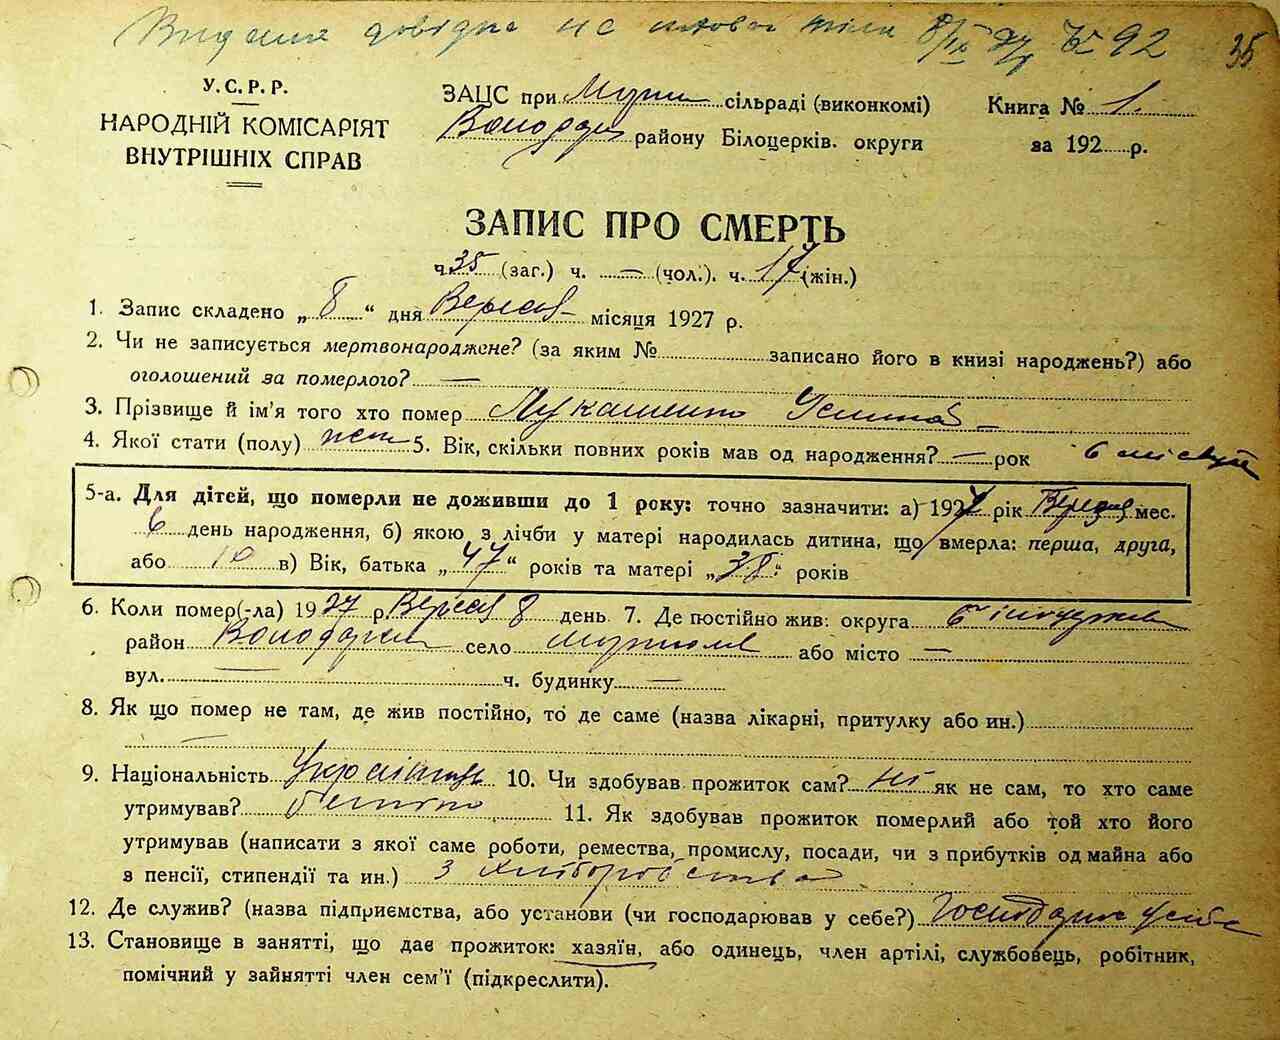 Видана довідка 8/IX 27 р № 92 35
У.С.Р.Р.
НАРОДНІЙ КОМІСАРІЯТ
ВНУТРІШНІХ СПРАВ
ЗАЦС при сільраді (виконкомі)
Володар. району Білоцерків. округи
Книга № 1.
за 192 р.
ЗАПИС ПРО СМЕРТЬ
ч. 35 (заг.) ч. — (чол.). ч. 17 (жін.)
1. Запис складено „ 8 “ дня Вересня місяця 1927 р.
2. Чи не записується мертвонароджене? (за яким № записано його в книзі народжень?) або
оголошений за померлого? —
3. Прізвище й ім'я того хто помер Лукашенко
4. Якої стати (полу) жін. 5. Вік, скільки повних років мав од народження? — рок 6
5-а. Для дітей, що померли не доживши до 1 року: точно зазначити: а) 1927 рік Вересня мес.
6 день народження, б) якою з лічби у матері народилась дитина, що вмерла: перша, друга,
або 10 в) Вік, батька „ 47 “ років та матері „ 38 “ років
6. Коли помер(-ла) 1927 р. Вересня 8 день 7. Де постійно жив: округа
район Володарськ. село або місто —
вул. — ч. будинку —
8. Як що помер не там, де жив постійно, то де саме (назва лікарні, притулку або ин.)
—
9. Національність Українець 10. Чи здобував прожиток сам? Ні як не сам, то хто саме
утримував? батько 11. Як здобував прожиток померлий або той хто його
утримував (написати з якої саме роботи, ремества, промислу, посади, чи з прибутків од майна або
з пенсії, стипендії та ин.) З хліборобства
12. Де служив? (назва підприємства, або установи (чи господарював у себе?) Господарює у себе
13. Становище в занятті, що дає прожиток: хазяїн, або одинець, член артілі, службовець, робітник,
помічний у зайнятті член сем'ї (підкреслити).